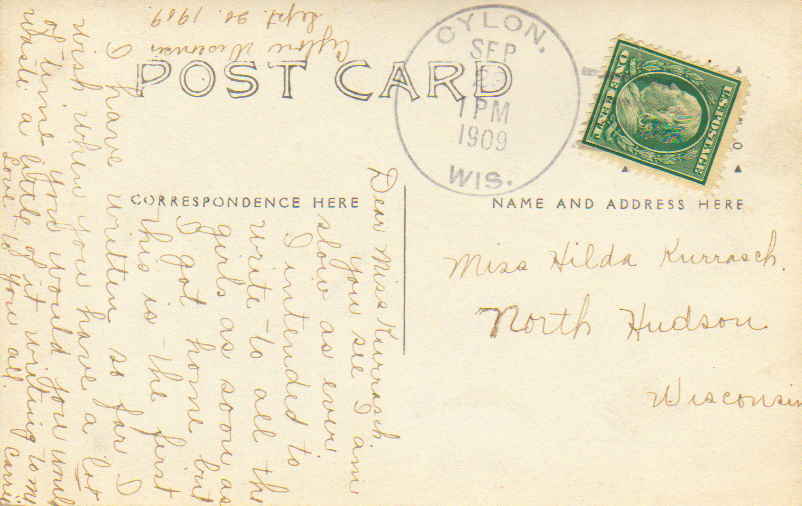 POST CARD
CYLON.
SEP
1 PM
1909
WIS.
U.S.POSTAGE
ONE CENT
CORRESPONDENCE HERE
NAME AND ADDRESS HERE
Cylon Wisconsin
Sept. 20. 1909
Dear Miss Kurrasch.
you see I am
slow as ever
I intended to
write to all the
girls as soon as
I got home but
this is the first
I have written so far I
wish when you have a lot
of time you would you would
waste a little of it writing to me
Love to you all. Carrie
Miss Hilda Kurrasch.
North Hudson
Wisconsin